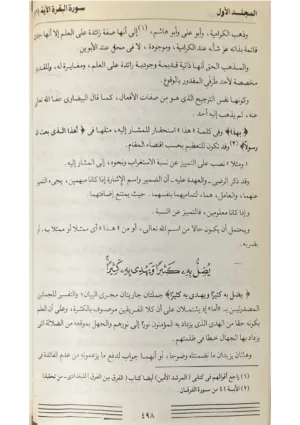 المجلد الأول سورة البقرة الآية
وذهب الكرامية، وأبو علي وأبو هاشم، (١) إلى أنها صفة زائدة على العلم إلا أنها
قائمة بذاته عز شأنه عند الكرامية، وموجودة، لا في محل عند الأبوين
والمذهب الحق أنها ذاتية قديمة وجودية زائدة على العلم، ومغايرة له،
مخصصة لأحد طرفي المقدور بالوقوع.
وكونها نفس الترجيح الذي هو من صفات الأفعال، كما قال البيضاوي عفا الله تعالى
عنه، لم يذهب إليه أحد.
﴿ بهذا ﴾ وفي كلمة « هذا » استحقار للمشار إليه، مثلها في ﴿ أهذا الذي بعث
رسولاً ﴾ (٢) وقد تكون للتعظيم بحسب اقتضاء المقام.
« مثلا » نصب على التمييز عن نسبة الاستغراب ونحوه، إلى المشار إليه.
وقد ذكر الرضي ـ والعهدة عليه ـ أن الضمير واسم الإشارة إذا كانا مبهمين، يجيء التمييز
عنهما، والعامل، هما، لتماميتهما بنفسهما. حيث يمتنع إضافتهما.
وإذا كانا معلومين، فالتمييز عن النسبة.
ويحتمل أن يكون حالا من اسم الله تعالى، أو من « هذا » أي ممثلا أو ممثلا به، أو
بضربه.
يُضِلُّ بِهِۦ كَثِيرًا وَيَهْدِي بِهِۦ كَثِيرًا
﴿ يضل به كثيرًا ويهدي به كثيرًا ﴾ جملتان جاريتان مجرى البيان، والتفسير للجملتين
المصدرتين بـ «أما» إذ يشتملان على أن كلا الفريقين موصوف بالكثرة، وعلى أن العلم
بكونه حقا من الهدى الذي يزداد به المؤمنون نورا إلى نورهم والجهل بموقعه من الضلالة التي
يزداد بها الجهال خبطا في ظلمتهم.
وهاتان يزيدان ما تضمنتاه وضوحا، أو أنهما جواب لدفع ما يزعمونه من عدم الفائدة في
(١) راجع أقوالهم في كتابي ( المرشد الأمين) أيضا كتاب ( الفرق بين الفرق ) للبغدادي ـ من تحقيقنا
(٢) الآية ٤١ من سورة الفرقان
٤٩٨